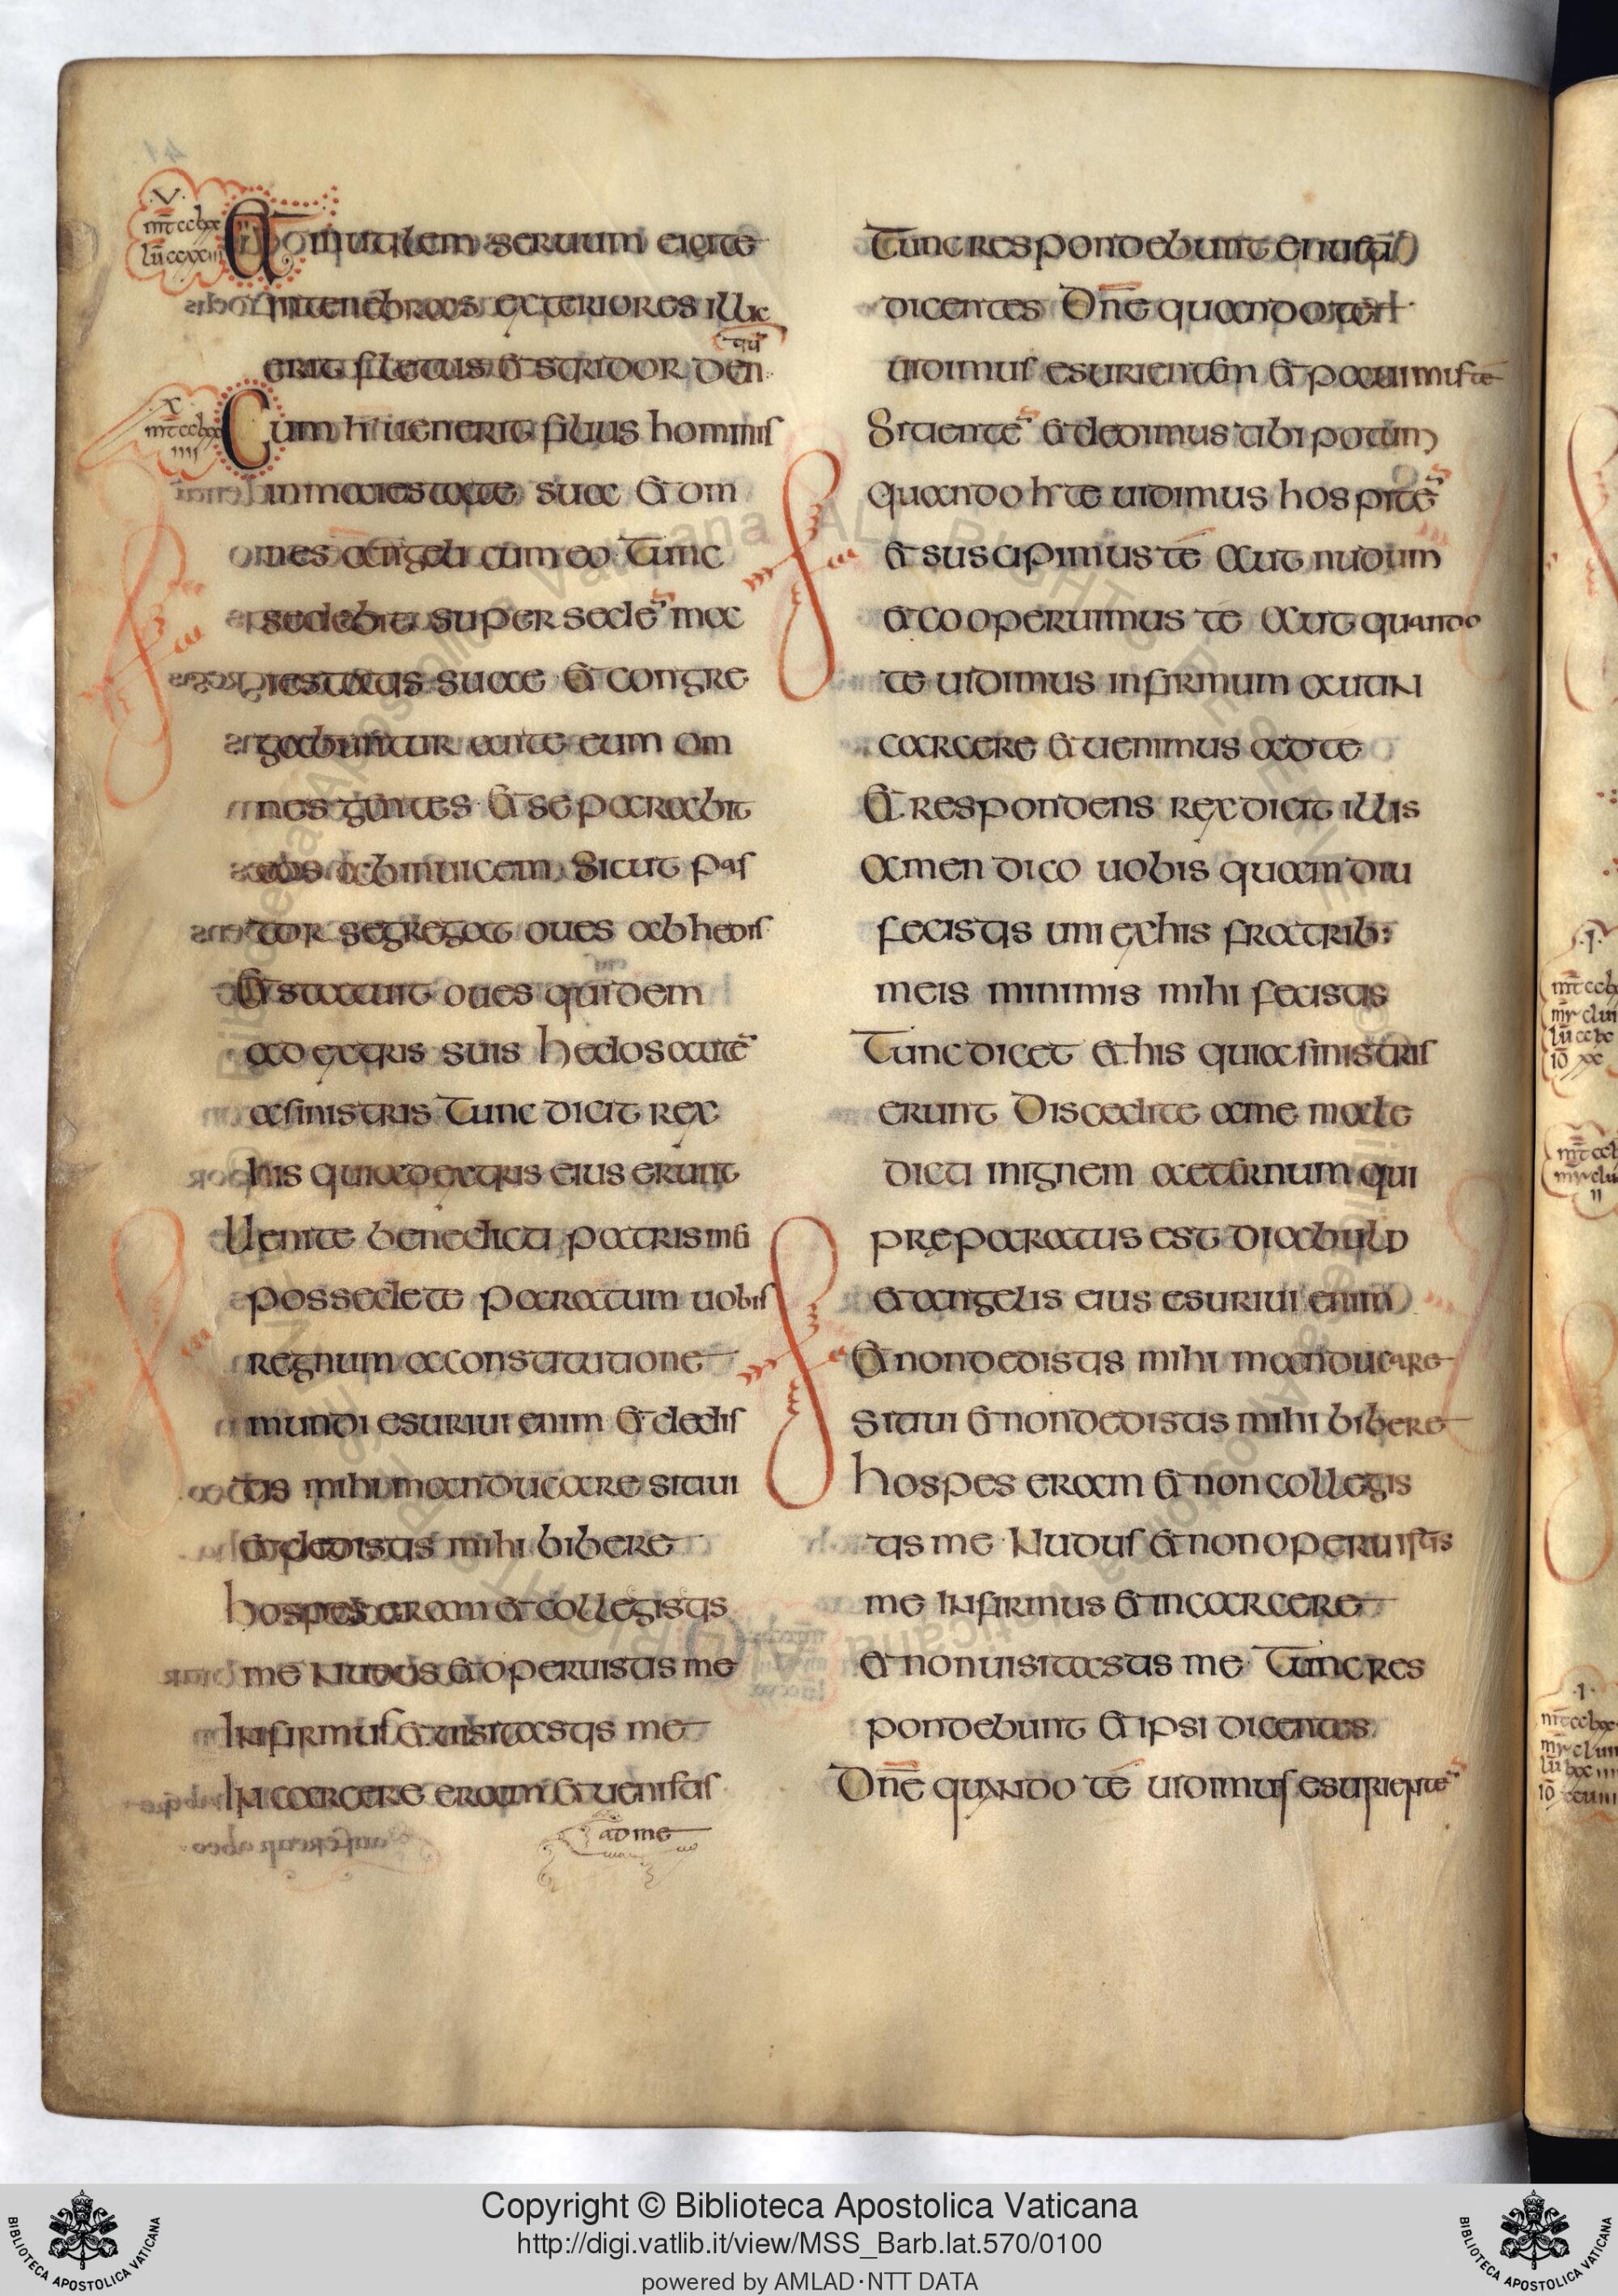 ·V·
m̄t cclxx
lū ccxxiii
Et inutilem seruum eicite
in tenebras exteriores illic
erit fletus et stridor den
tiū
·X·
m̄t cclxx
iiii
Cum ħ uenerit filius hominis
in maiestate sua et om
nes angeli cum eo Tunc
sedebit super sedē ma
iestatis suae et congre
gabuntur ante eum om
nes gentes et separabit
eos ab inuicem Sicut pas
tor segregat oues ab hedis
Et statuit oues quidem
ad extris suis hedos autē
a sinistris Tunc dicit rex
his qui ad extris eius erunt
Uenite benedicti patris mei
possedete paratum uobis
regnum a constitutione
mundi esuriui enim et dedis
tis mihi manducare sitiui
et dedistis mihi bibere
hospes eram et collegistis
me Nudus et operuistis me
Infirmus et uisitastis me
In carcere eram et uenistis
ad me
Tunc respondebunt ei iusti
dicentes Dn̄e quando te
uidimus esurientem et pauimus te
Sitientē et dedimus tibi potum
quando ħ te uidimus hospitē
et suscipimus te Aut nudum
et cooperuimus te Aut quando
te uidimus infirmum aut in
carcere et uenimus ad te
Et respondens rex dicit illis
Amen dico uobis quamdiu
fecistis uni ex his fratrib:
meis minimis mihi fecistis
Tunc dicet et his qui a sinistris
erunt Discedite a me male
dicti in ignem aeternum qui
pręparatus est diabulo
et angelis eius esuriui enim
Et non dedistis mihi manducare
Sitiui et non dedistis mihi bibere
hospes eram et non collegis
tis me Nudus et non operuistis
me Infirmus et in carcere
et non uisitastis me Tunc res
pondebunt et ipsi dicentes
Dn̄e quando te uidimus esurientē
Copyright © Biblioteca Apostolica Vaticana
http://digi.vatlib.it/view/MSS_Barb.lat.570/0100
powered by AMLAD·NTT DATA
BIBLIOTECA APOSTOLICA VATICANA
BIBLIOTECA APOSTOLICA VATICANA